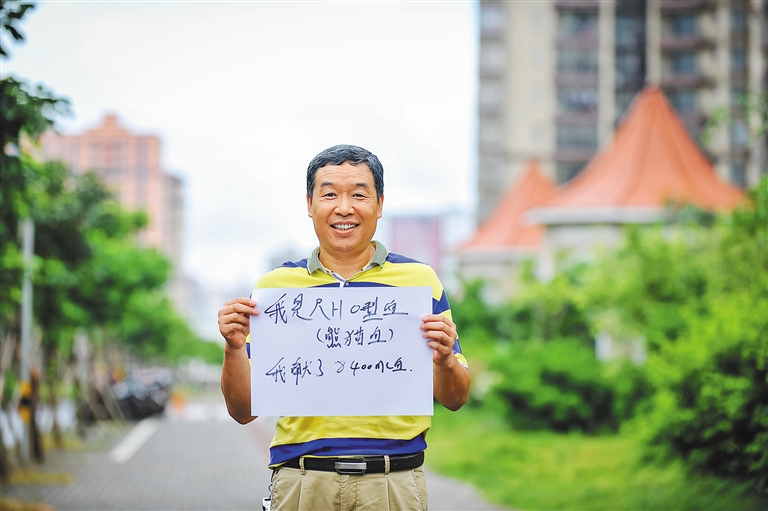 我是RH O型血
(熊猫血)
我献了8400ml血.